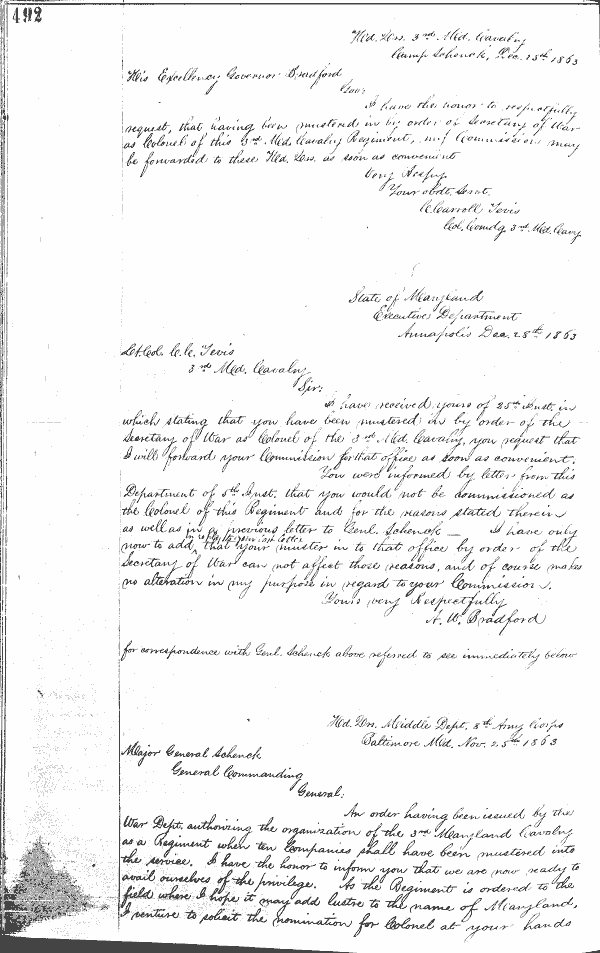 492
Hed. Qrs. 3rd Md. Cavalry
Camp Schenck, Dec. 25th 1863
His Excellency Governor Bradford
Gov:
I have the honor to respectfully
request, that having been mustered in by order of Secretary of War
as Colonel of this 3rd Md. Cavalry Regiment, my Commission may
be forwarded to these Hed. Qrs. as soon as convenient
Very Respy.
Your obdt. Servt.
C. Carroll Tevis
Col. Comdg. 3rd Md. Cavy
State of Maryland
Executive Department
Annapolis Dec. 28th 1863
Lt. Col. C. C. Tevis
3rd Md. Cavalry
Sir:
I have received yours of 25th Inst. in
which stating that you have been mustered in by order of the
Secretary of War as Colonel of the 3rd Md. Cavalry, you request that
I will forward your Commission for that office as soon as convenient.
You were informed by letter from this
Department of 5th Inst. that you would not be commissioned as
the Colonel of this Regiment and for the reasons stated therein
as well as in a previous letter to Genl. Schenck — I have only
in reply to your last letter
now to add, that your muster in to that office by order of the
Secretary of War can not affect those reasons, and of course makes
no alteration in my purpose in regard to your Commission.
Yours very Respectfully
A. W. Bradford
for correspondence with Genl. Schenck above referred to see immediately below
Hd. Qrs. Middle Dept. 8th Army Corps
Baltimore Md. Nov. 25th 1863
Major General Schenck
General Commanding
General:
An order having been issued by the
War Dept. authorizing the organization of the 3rd Maryland Cavalry
as a Regiment when ten Companies shall have been mustered into
the service. I have the honor to inform you that we are now ready to
avail ourselves of the privilege. As the Regiment is ordered to the
field where I hope it may add lustre to the name of Maryland,
I venture to solicit the nomination for Colonel at your hands